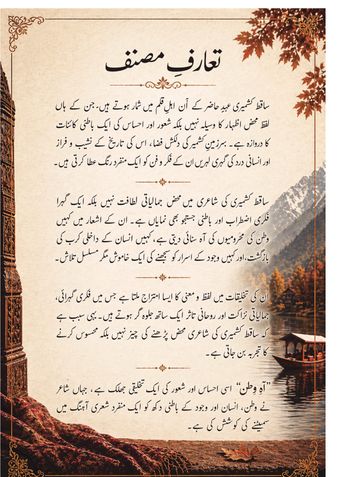 تعارفِ مصنف
ساقط کشمیری عہدِ حاضر کے اُن اہلِ قلم میں شمار ہوتے ہیں، جن کے ہاں
لفظ محض اظہار کا وسیلہ نہیں بلکہ شعور اور احساس کی ایک باطنی کائنات
کا دروازہ ہے۔ سرزمینِ کشمیر کی دلکش فضا، اس کی تاریخ کے نشیب و فراز
اور انسانی درد کی گہری لہریں ان کے فکر و فن کو ایک منفرد رنگ عطا کرتی ہیں۔
ساقط کشمیری کی شاعری میں محض جمالیاتی لطافت نہیں بلکہ ایک گہرا
فکری اضطراب اور باطنی جستجو بھی نمایاں ہے۔ ان کے اشعار میں کہیں
وطن کی محرومیوں کی آہ سنائی دیتی ہے، کہیں انسان کے داخلی کرب کی
بازگشت، اور کہیں وجود کے اسرار کو سمجھنے کی ایک خاموش مگر مسلسل تلاش۔
ان کی تخلیقات میں لفظ و معنی کا ایسا امتزاج ملتا ہے جس میں فکری گہرائی،
جمالیاتی نزاکت اور روحانی تاثر ایک ساتھ جلوہ گر ہوتے ہیں۔ یہی سبب ہے
کہ ساقط کشمیری کی شاعری محض پڑھنے کی چیز نہیں بلکہ محسوس کرنے
کا تجربہ بن جاتی ہے۔
"آہِ وطن" اسی احساس اور شعور کی ایک تخلیقی جھلک ہے، جہاں شاعر
نے وطن، انسان اور وجود کے باطنی دکھ کو ایک منفرد شعری آہنگ میں
سمیٹنے کی کوشش کی ہے۔